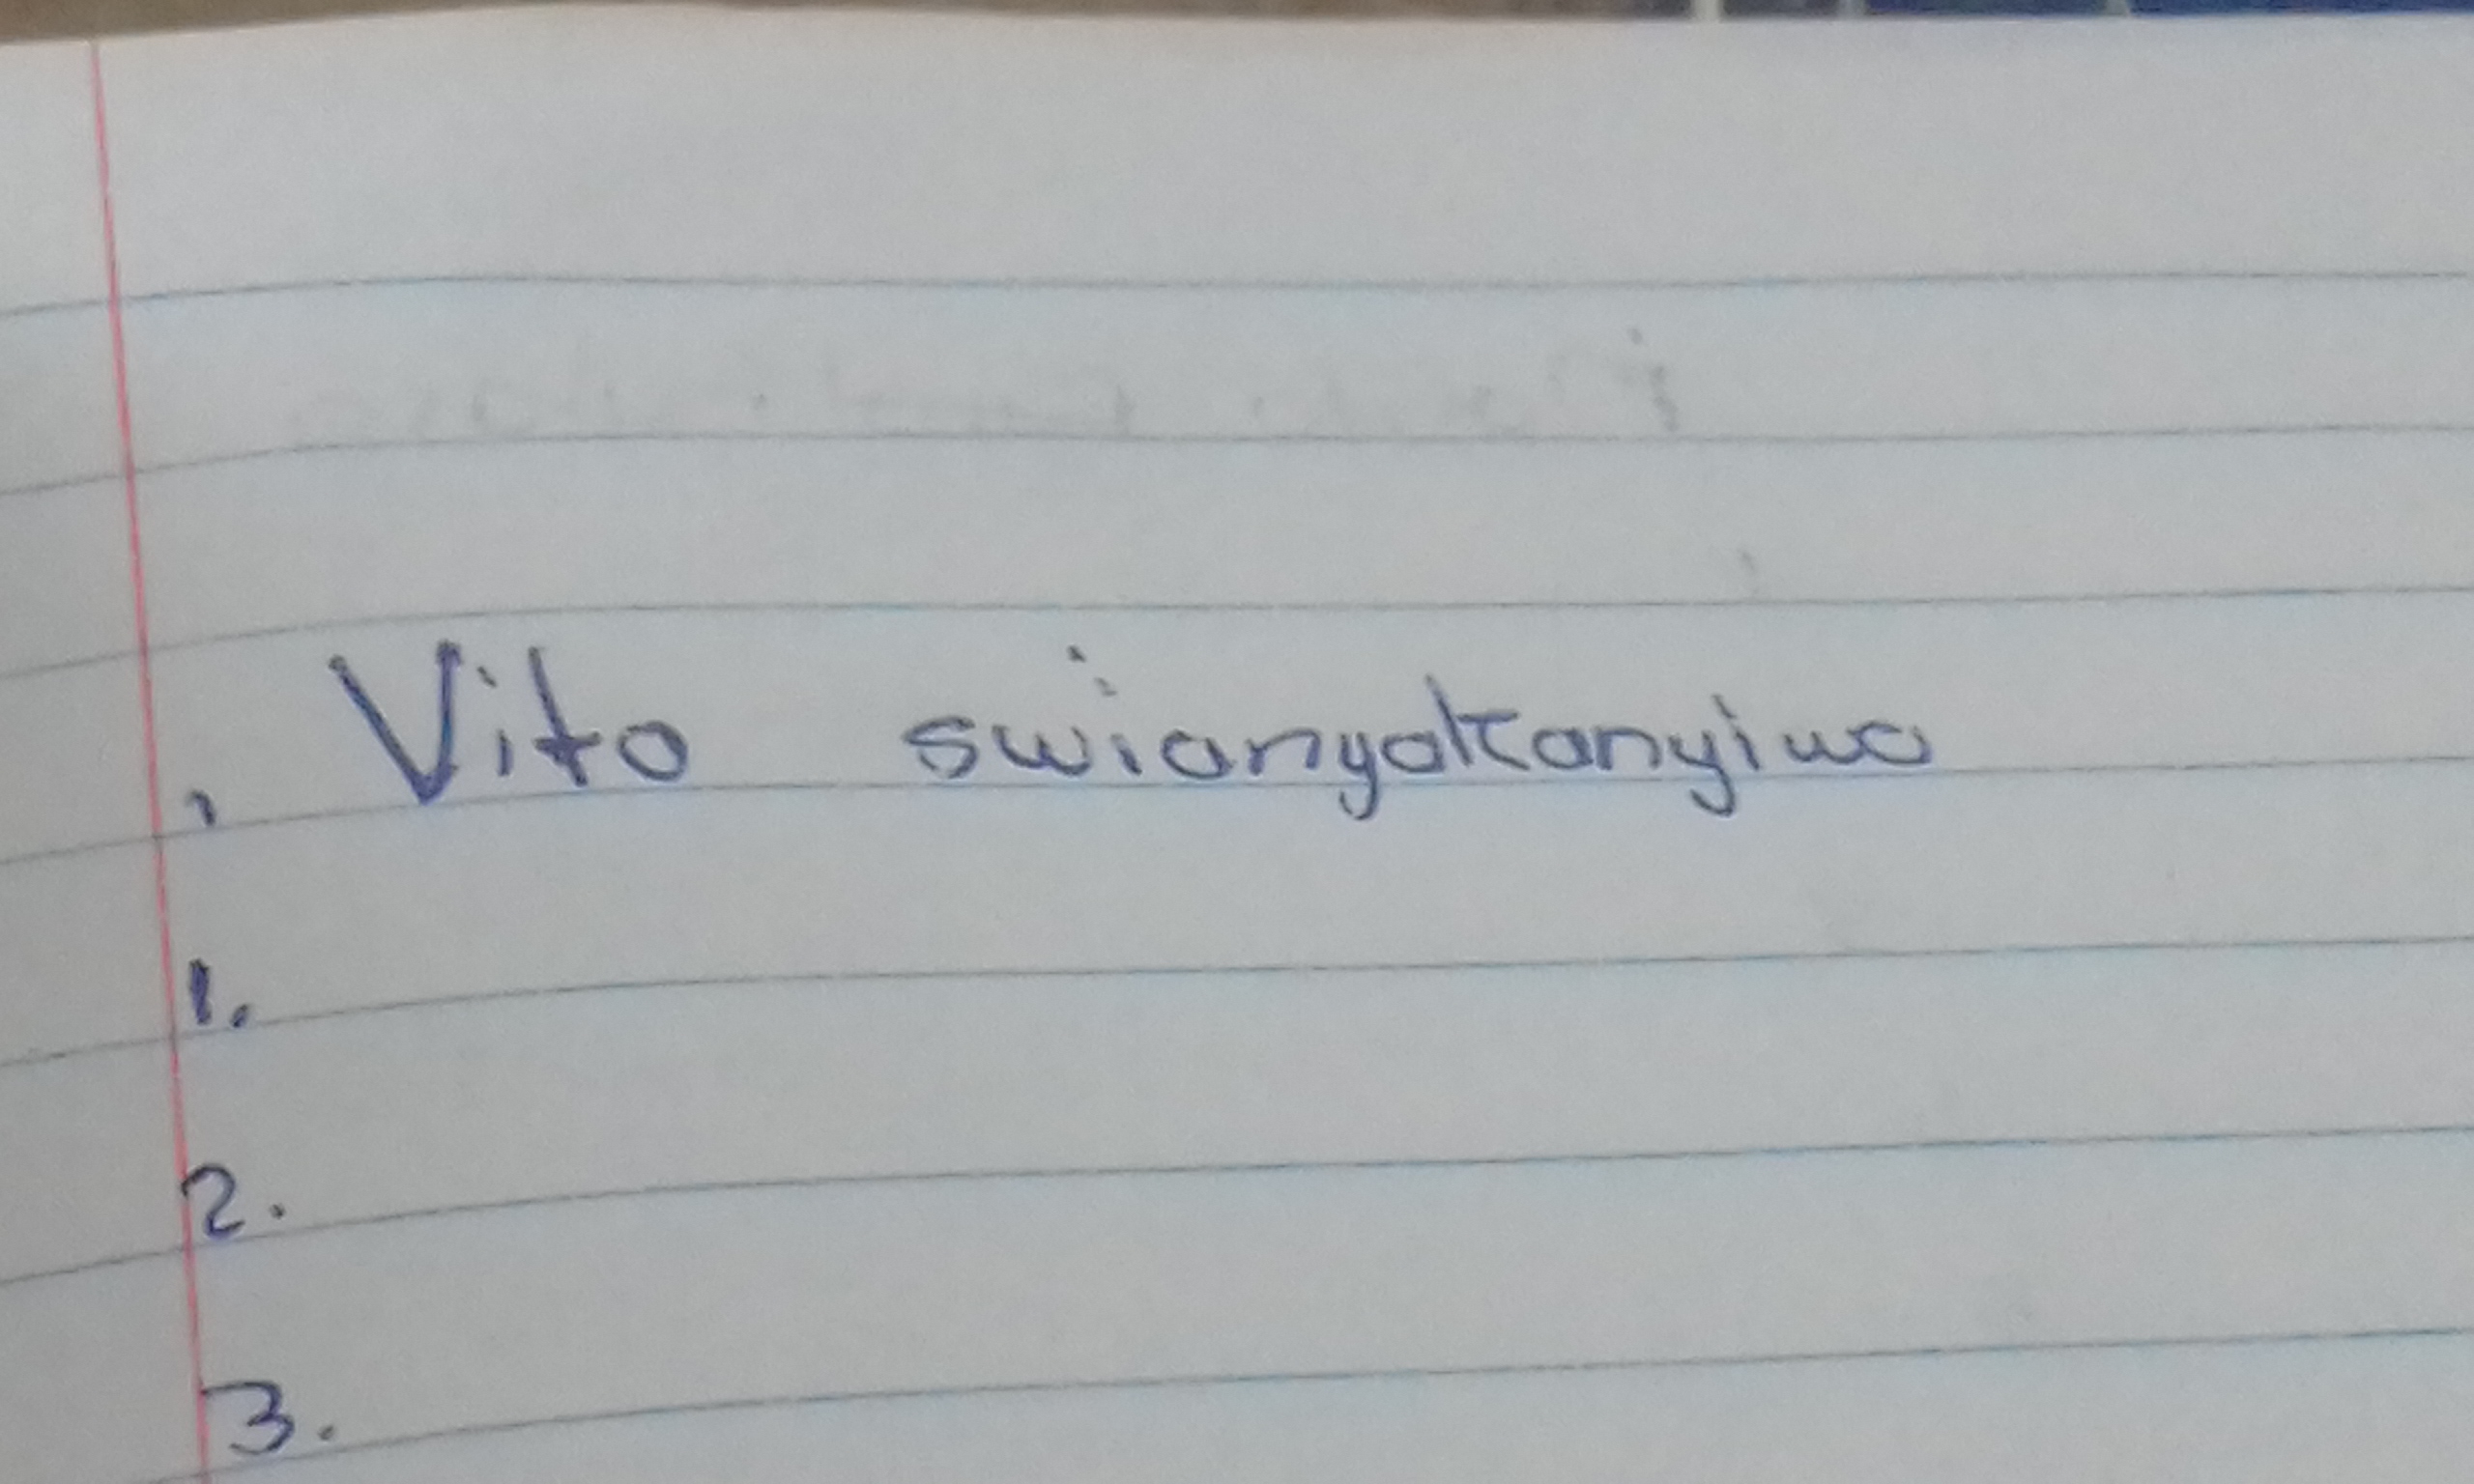 , Vito swianyakanyiwa
1.
2.
3.